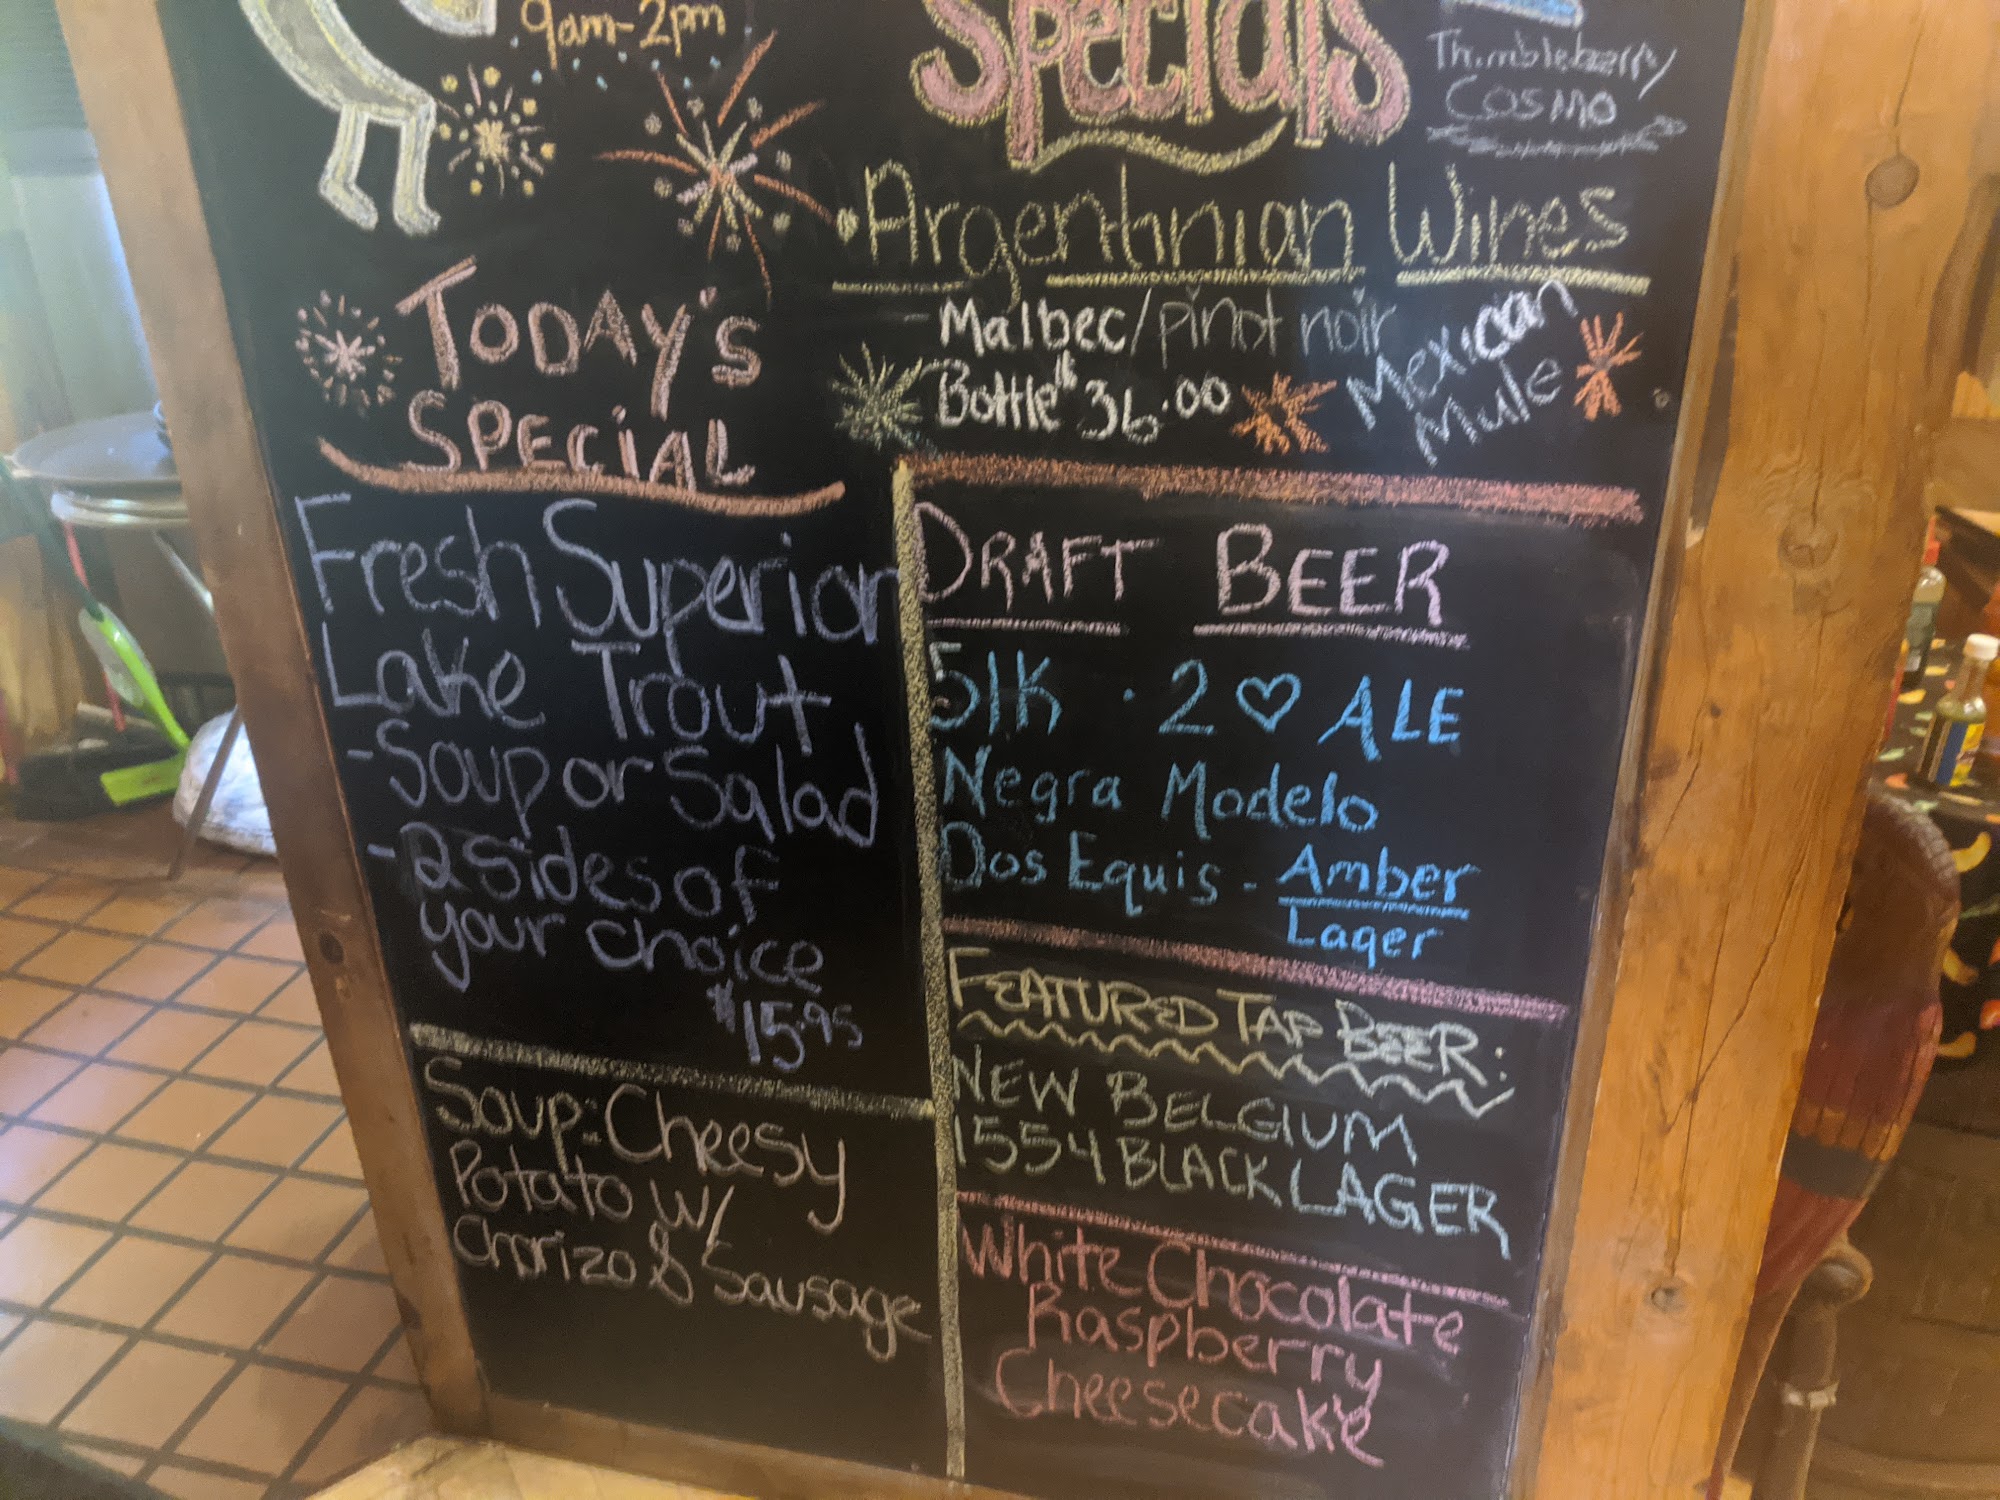 9am-2pm
Specials
Thimbleberry
COSMO
• Argentinian Wines
- Malbec/pinot noir
Bottle $36.00
Mexican
Mule
TODAY'S
SPECIAL
Fresh Superior
Lake Trout
- Soup or Salad
- 2 sides of
your choice
$15.95
Soup: Cheesy
Potato w/
Chorizo & Sausage
DRAFT BEER
51K · 2 ♡ ALE
Negra Modelo
Dos Equis - Amber
Lager
FEATURED TAP BEER:
NEW BELGIUM
1554 BLACK LAGER
White Chocolate
Raspberry
Cheesecake